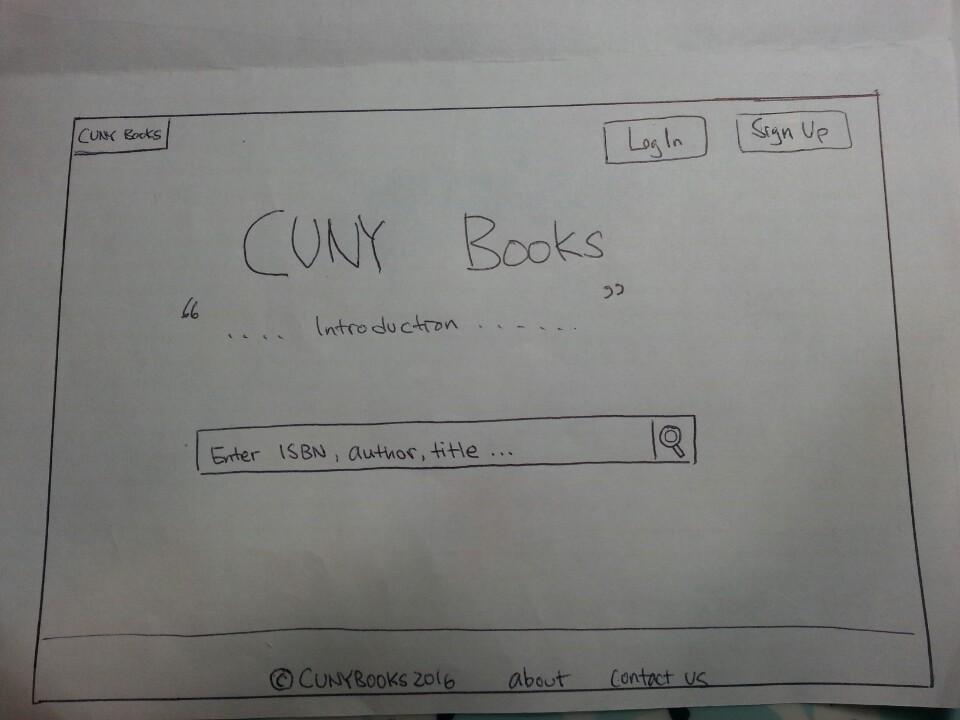 CUNY Books
Log In
Sign Up
CUNY Books
“ .... Introduction ...... ”
Enter ISBN, author, title ...
© CUNYBOOKS 2016 about contact us